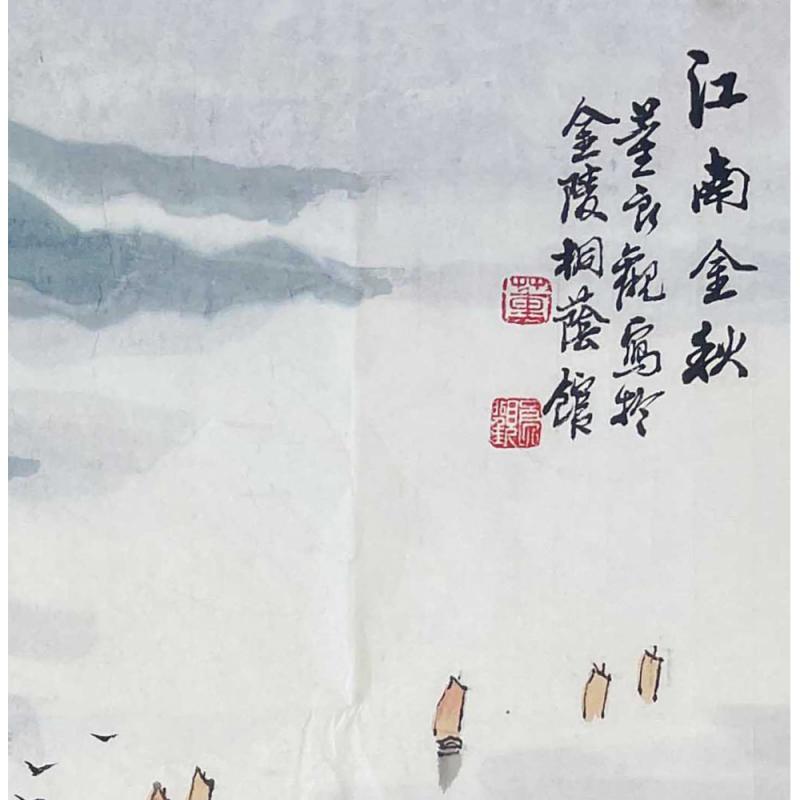 江南金秋
董良觀寫於
金陵桐蔭館
董
良觀